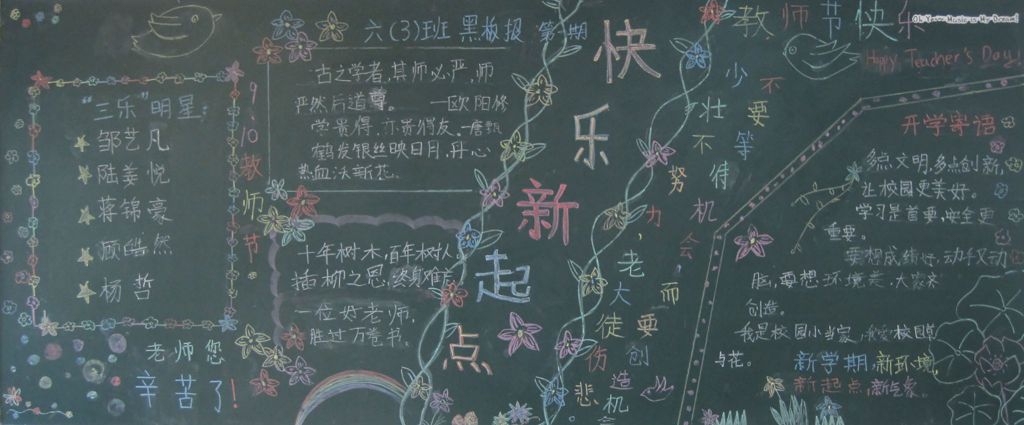 六(3)班 黑板报 第一期
"三乐"明星:
邹艺凡
陆姜悦
蒋锦豪
顾皓然
杨哲
9.10教师节
老师您
辛苦了!
古之学者,其师必严,师
严然后道尊。 一欧阳修
学贵得,亦贵得友。一唐甄
鹤发银丝映日月,丹心
热血沃新花。
十年树木,百年树人
插柳之恩,终身难忘
一位好老师,
胜过万卷书。
快乐新起点
教师节快乐
Happy Teacher's Day!
不要等待机会,而要创造机会
少壮不努力,老大徒伤悲
开学寄语
多点文明,多点创新,
让校园更美好。
学习是首要,安全更
重要。
要想成绩好,动手又动
脑,要想环境美,大家齐
创造。
我是校园小当家,我爱校园草
与花。
新学期,新环境,
新起点,
Music is My Dream!